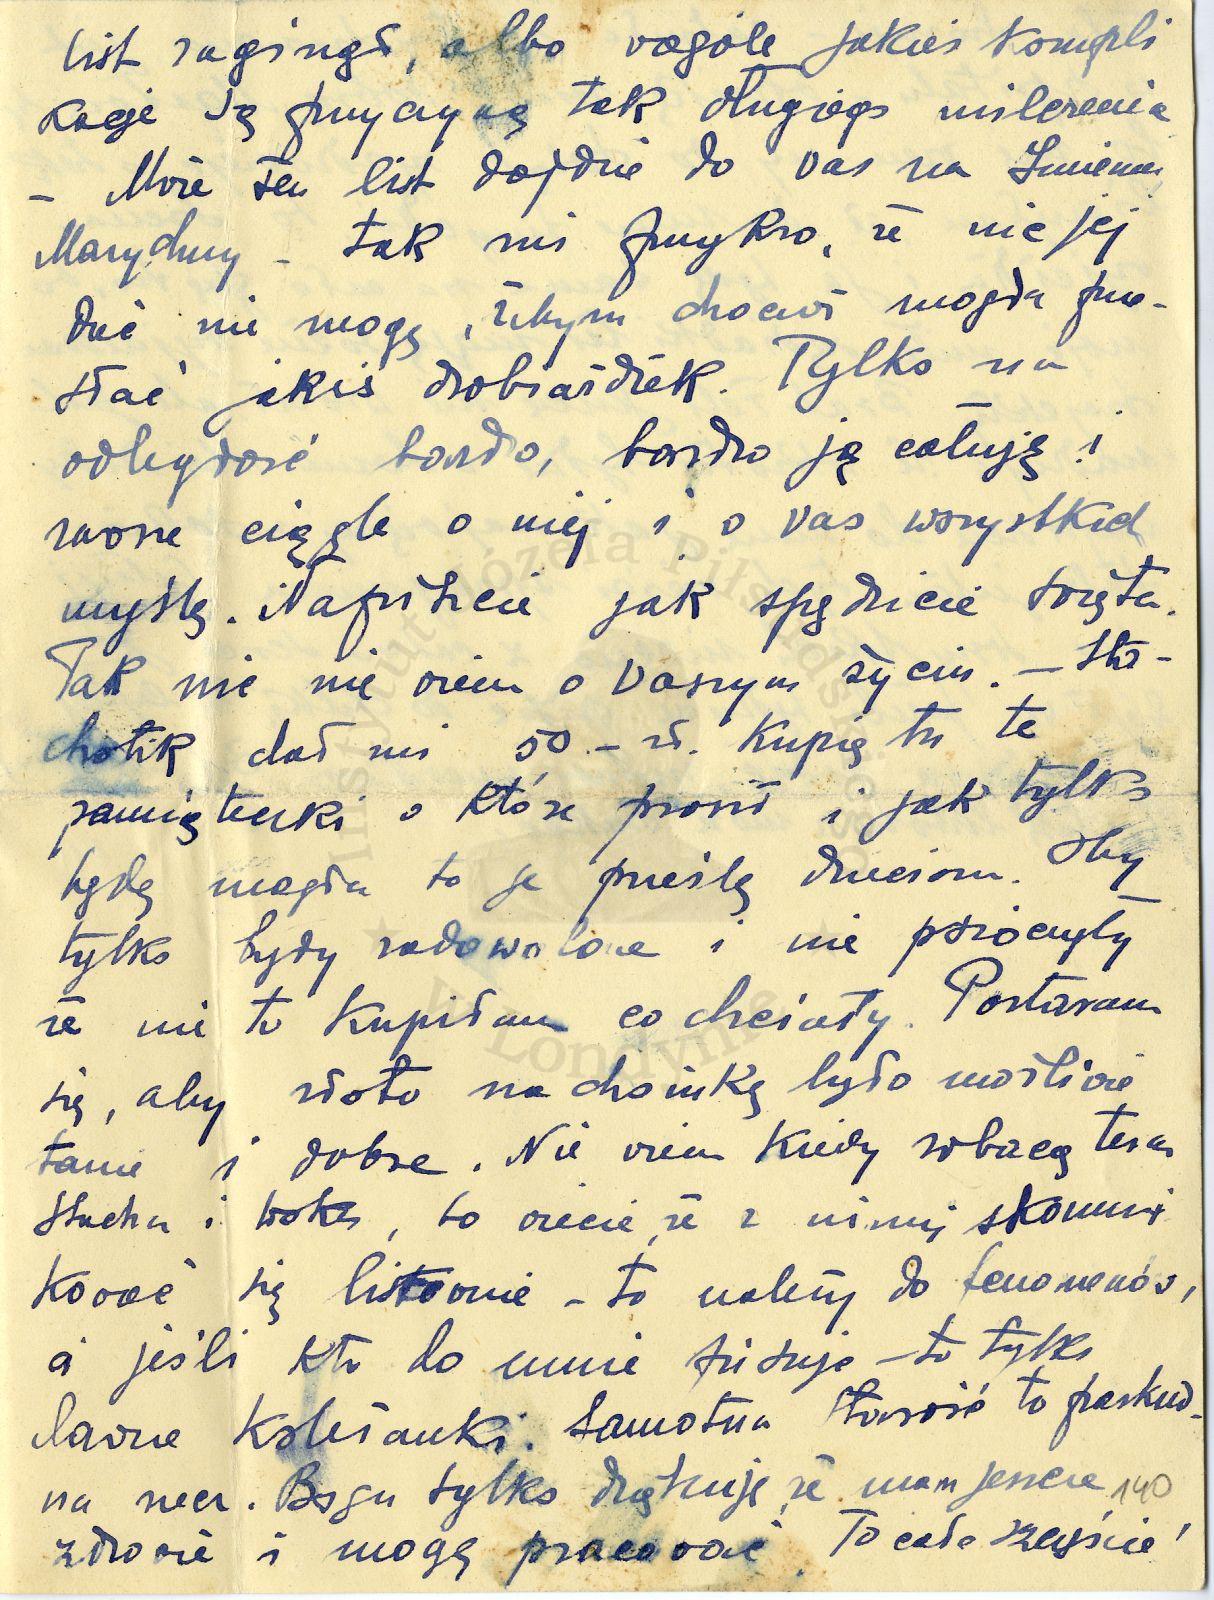 list zaginął, albo wogóle jakieś kompli
kacje są przyczyną tak długiego milczenia
– Może ten list dojdzie do Was na Imieniny
Marychny – tak mi przykro, że nic jej
dać nie mogę, żebym chociaż mogła prze-
słać jakiś drobiażdżek. Tylko na
odległość bardzo, bardzo ją całuję i
zawsze ciągle o niej i o Was wszystkich
myślę. Napiszcie jak spędzicie święta.
Tak nic nie wiem o Waszym życiu. – Sta-
chotik dał mi 50 – zł. Kupię tu te
pamiąteczki o które prosił i jak tylko
będę mogła to je prześlę dzieciom. Oby
tylko były zadowolone i nie psioczyły
że nie to kupiłam co chciały. Postaram
się, aby złoto na choinkę było możliwie
tanie i dobre. Nie wiem kiedy zobaczę teraz
Stacha i , to wiecie, że z nimi skomuni
kować się listownie – to należy do fenomenów,
a jeśli kto do mnie pisuje – to tylko
dawne koleżanki. Samotna starość to paskud-
na rzecz. Bogu tylko dziękuję, że mam jeszcze
zdrowie i mogę pracować. To całe szczęście!
140
Instytut Józefa Piłsudskiego
w Londynie